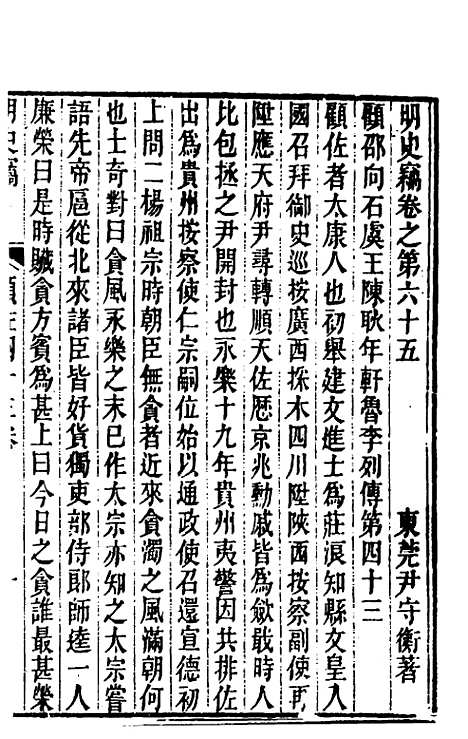 明史竊卷之第六十五 東莞尹守衡著
顧邵向石虞王陳耿年軒魯李列傳第四十三
顧佐者太康人也初舉建文進士為莊浪知縣文皇入
國召拜御史巡按廣西採木四川陞陝西按察副使再
陞應天府尹尋轉順天佐歷京兆勳戚皆為斂戢時人
比包拯之尹開封也永樂十九年貴州夷警因共排佐
出為貴州按察使仁宗嗣位始以通政使召還宣德初
上問二楊祖宗時朝臣無貪者近來貪濁之風滿朝何
也士奇對曰貪風永樂之末巳作太宗亦知之太宗嘗
語先帝扈從北來諸臣皆好貨獨吏部侍郎師逵一人
廉榮曰是時贓貪方賓為甚上曰今日之貪誰最甚榮